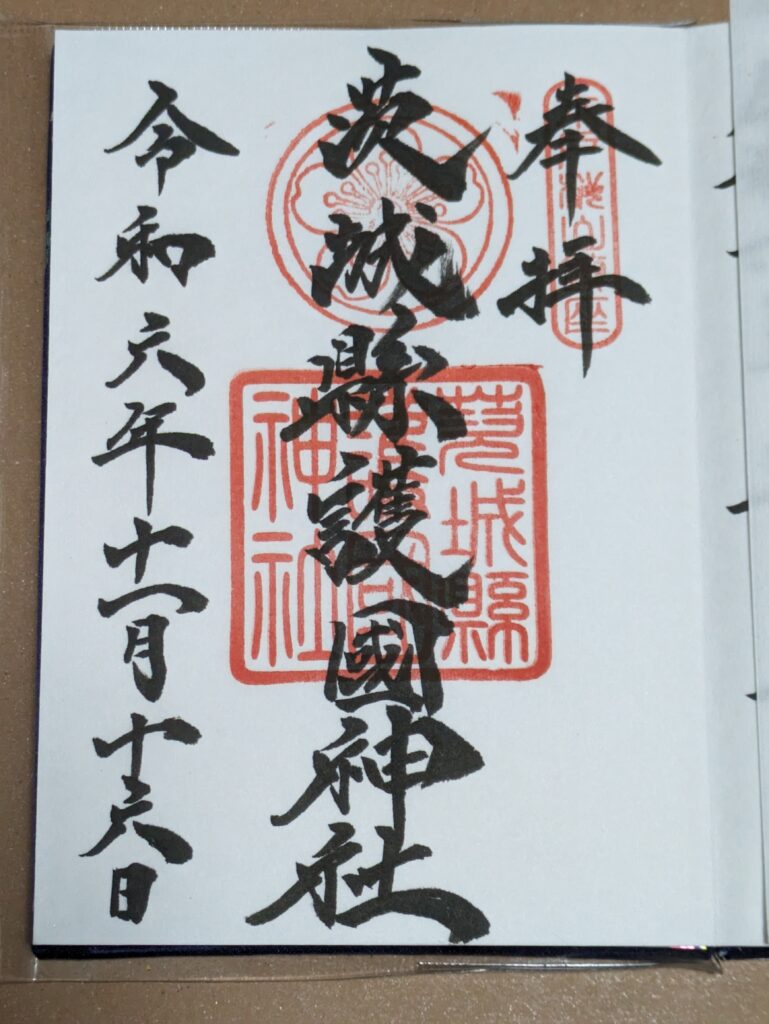 奉拝
茨城縣護國神社
令和六年十一月十六日
茨城縣
護國
神社